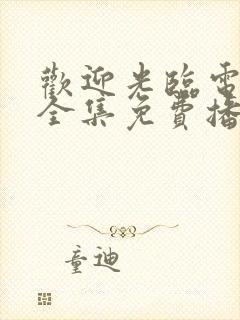 歡迎光臨電
全集免費播
童迪